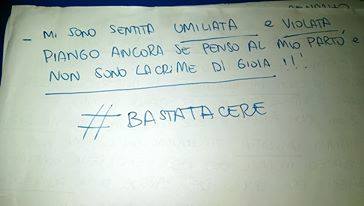 - MI SONO SENTITA UMILIATA e VIOLATA
PIANGO ANCORA SE PENSO AL MIO PARTO e
NON SONO LACRIME DI GIOIA !!!
#BASTATACERE